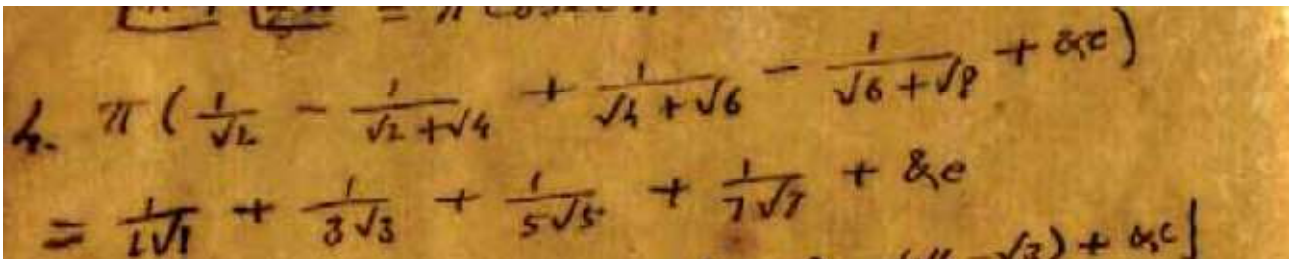 4. π (1/√2 - 1/(√2 + √4) + 1/(√4 + √6) - 1/(√6 + √8) + &c)
= 1/(1√1) + 1/(3√3) + 1/(5√5) + 1/(7√7) + &c